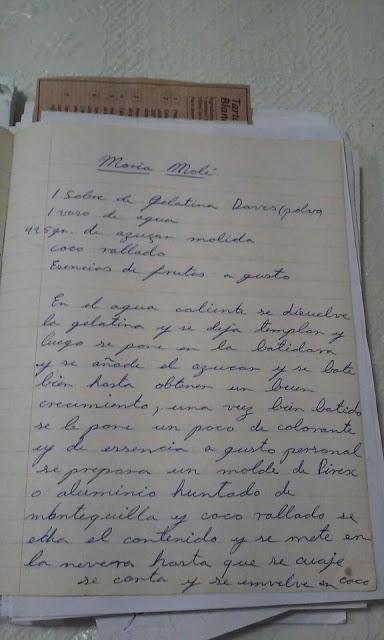 Tarta
Blan
Maria Molé
1 Sobre de gelatina Davis (polvo
1 vaso de agua
425 gr. de azuçar molida
coco rallado
Esencias de frutas a gusto
En el agua caliente se disuelve
la gelatina y se deja templar y
luego se pone en la batidora
y se añade el azucar y se bate
bien hasta obtener un buen
crecimiento, una vez bien batido
se le pone un poco de colorante
y de essencia a gusto personal
se prepara un molde de Pirex
o aluminio huntado de
mantequilla y coco rallado se
etha el contenido y se mete en
la nevera hasta que se cuaje
se corta y se emvelve en coco